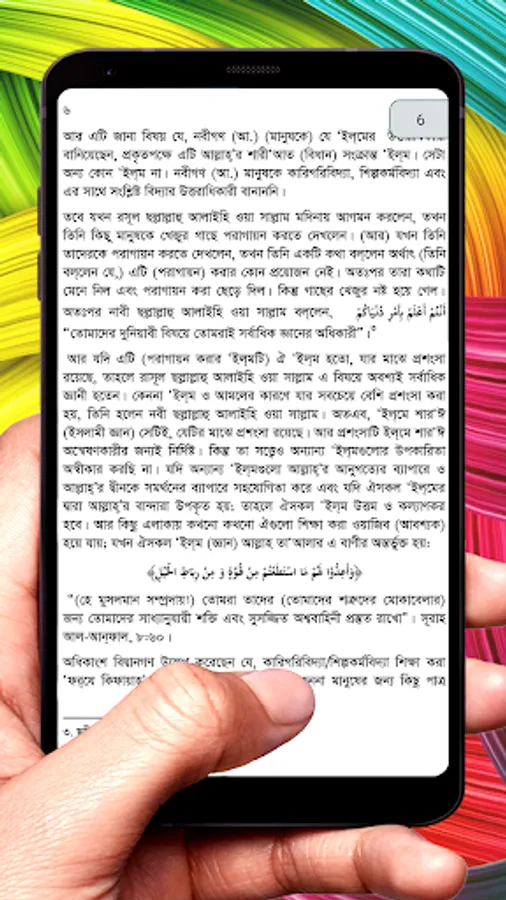 ৬
6
আর এটি জানা বিষয় যে, নবীগণ (আ.) (মানুষকে) যে 'ইল্‌মের
বানিয়েছেন, প্রকৃতপক্ষে এটি আল্লাহ্'র শারী'আত (বিধান) সংক্রান্ত 'ইল্‌ম। সেটা
অন্য কোন 'ইল্‌ম না। নবীগণ (আ.) মানুষকে কারিগরিবিদ্যা, শিল্পকর্মবিদ্যা এবং
এর সাথে সংশ্লিষ্ট বিদ্যার উত্তরাধিকারী বানাননি।
তবে যখন রসূল ছল্লাল্লাহু আলাইহি ওয়া সাল্লাম মদিনায় আগমন করলেন, তখন
তিনি কিছু মানুষকে খেজুর গাছে পরাগায়ন করতে দেখলেন। (আর) যখন তিনি
তাদেরকে পরাগায়ন করতে দেখলেন, তখন তিনি একটি কথা বল্‌লেন অর্থাৎ (তিনি
বল্‌লেন যে,) এটি (পরাগায়ন) করার কোন প্রয়োজন নেই। অতঃপর তারা কথাটি
মেনে নিল এবং পরাগায়ন করা ছেড়ে দিল। কিন্তু গাছের খেজুর নষ্ট হয়ে গেল।
অতঃপর নাবী ছল্লাল্লাহু আলাইহি ওয়া সাল্লাম বল্‌লেন, أَنْتُمْ أَعْلَمُ بِأَمْرِ دُنْيَاكُمْ
"তোমাদের দুনিয়াবী বিষয়ে তোমরাই সর্বাধিক জ্ঞানের অধিকারী"।৩
আর যদি এটি (পরাগায়ন করার 'ইল্‌মটি) ঐ 'ইল্‌ম হতো, যার মাঝে প্রশংসা
রয়েছে, তাহলে রাসূল ছল্লাল্লাহু আলাইহি ওয়া সাল্লাম এ বিষয়ে অবশ্যই সর্বাধিক
জ্ঞানী হতেন। কেননা 'ইল্‌ম ও আমলের কারণে যার সবচেয়ে বেশি প্রশংসা করা
হয়, তিনি হলেন নবী ছল্লাল্লাহু আলাইহি ওয়া সাল্লাম। অতএব, 'ইল্‌মে শার'ঈ
(ইসলামী জ্ঞান) সেটিই, যেটির মাঝে প্রশংসা রয়েছে। আর প্রশংসাটি ইল্‌মে শার'ঈ
অন্বেষণকারীর জন্যই নির্দিষ্ট। কিন্তু তা সত্ত্বেও অন্যান্য 'ইল্‌মগুলোর উপকারিতা
অস্বীকার করছি না। যদি অন্যান্য 'ইল্‌মগুলো আল্লাহ্'র আনুগত্যের ব্যাপারে ও
আল্লাহ্'র দ্বীনকে সমর্থনের ব্যাপারে সহযোগিতা করে এবং যদি ঐসকল 'ইল্‌মের
দ্বারা আল্লাহ্'র বান্দারা উপকৃত হয়: তাহলে ঐসকল 'ইল্‌ম উত্তম ও কল্যাণকর
হবে। আর কিছু এলাকায় কখনো কখনো ঐগুলো শিক্ষা করা ওয়াজিব (আবশ্যক)
হয়ে যায়; যখন ঐসকল 'ইল্‌ম (জ্ঞান) আল্লাহ তা'আলার এ বাণীর অন্তর্ভুক্ত হয়:
﴿وَأَعِدُّوا لَهُمْ مَا اسْتَطَعْتُمْ مِنْ قُوَّةٍ وَ مِنْ رِبَاطِ الْخَيْلِ﴾
"(হে মুসলমান সম্প্রদায়!) তোমরা তাদের (তোমাদের শত্রুদের মোকাবেলার)
জন্য তোমাদের সাধ্যানুযায়ী শক্তি এবং সুসজ্জিত অশ্ববাহিনী প্রস্তুত রাখো"। সূরাহ
আল-আন্‌ফাল, ৮:৬০।
অধিকাংশ বিদ্বানগণ করেছেন যে, কারিগরিবিদ্যা/শিল্পকর্মবিদ্যা শিক্ষা করা
'ফর্‌যে কিফায়াহ্' মানুষের জন্য কিছু পাত্র
৩.